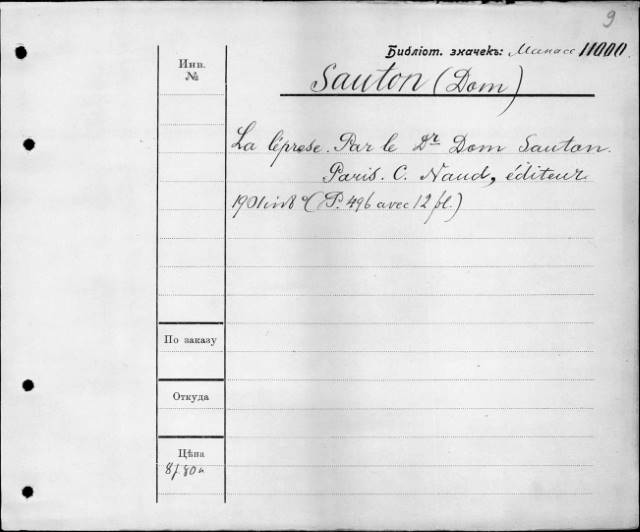 9
Библіот. значекъ: Манасе 11000.
Инв.
№
Sauton (Dom)
La léprose. Par le Dr Dom Sauton.
Paris. C. Naud, éditeur
1901 in 8° (P. 496 avec 12 pl.)
По заказу
Откуда
Цѣна
8 р. 80 к